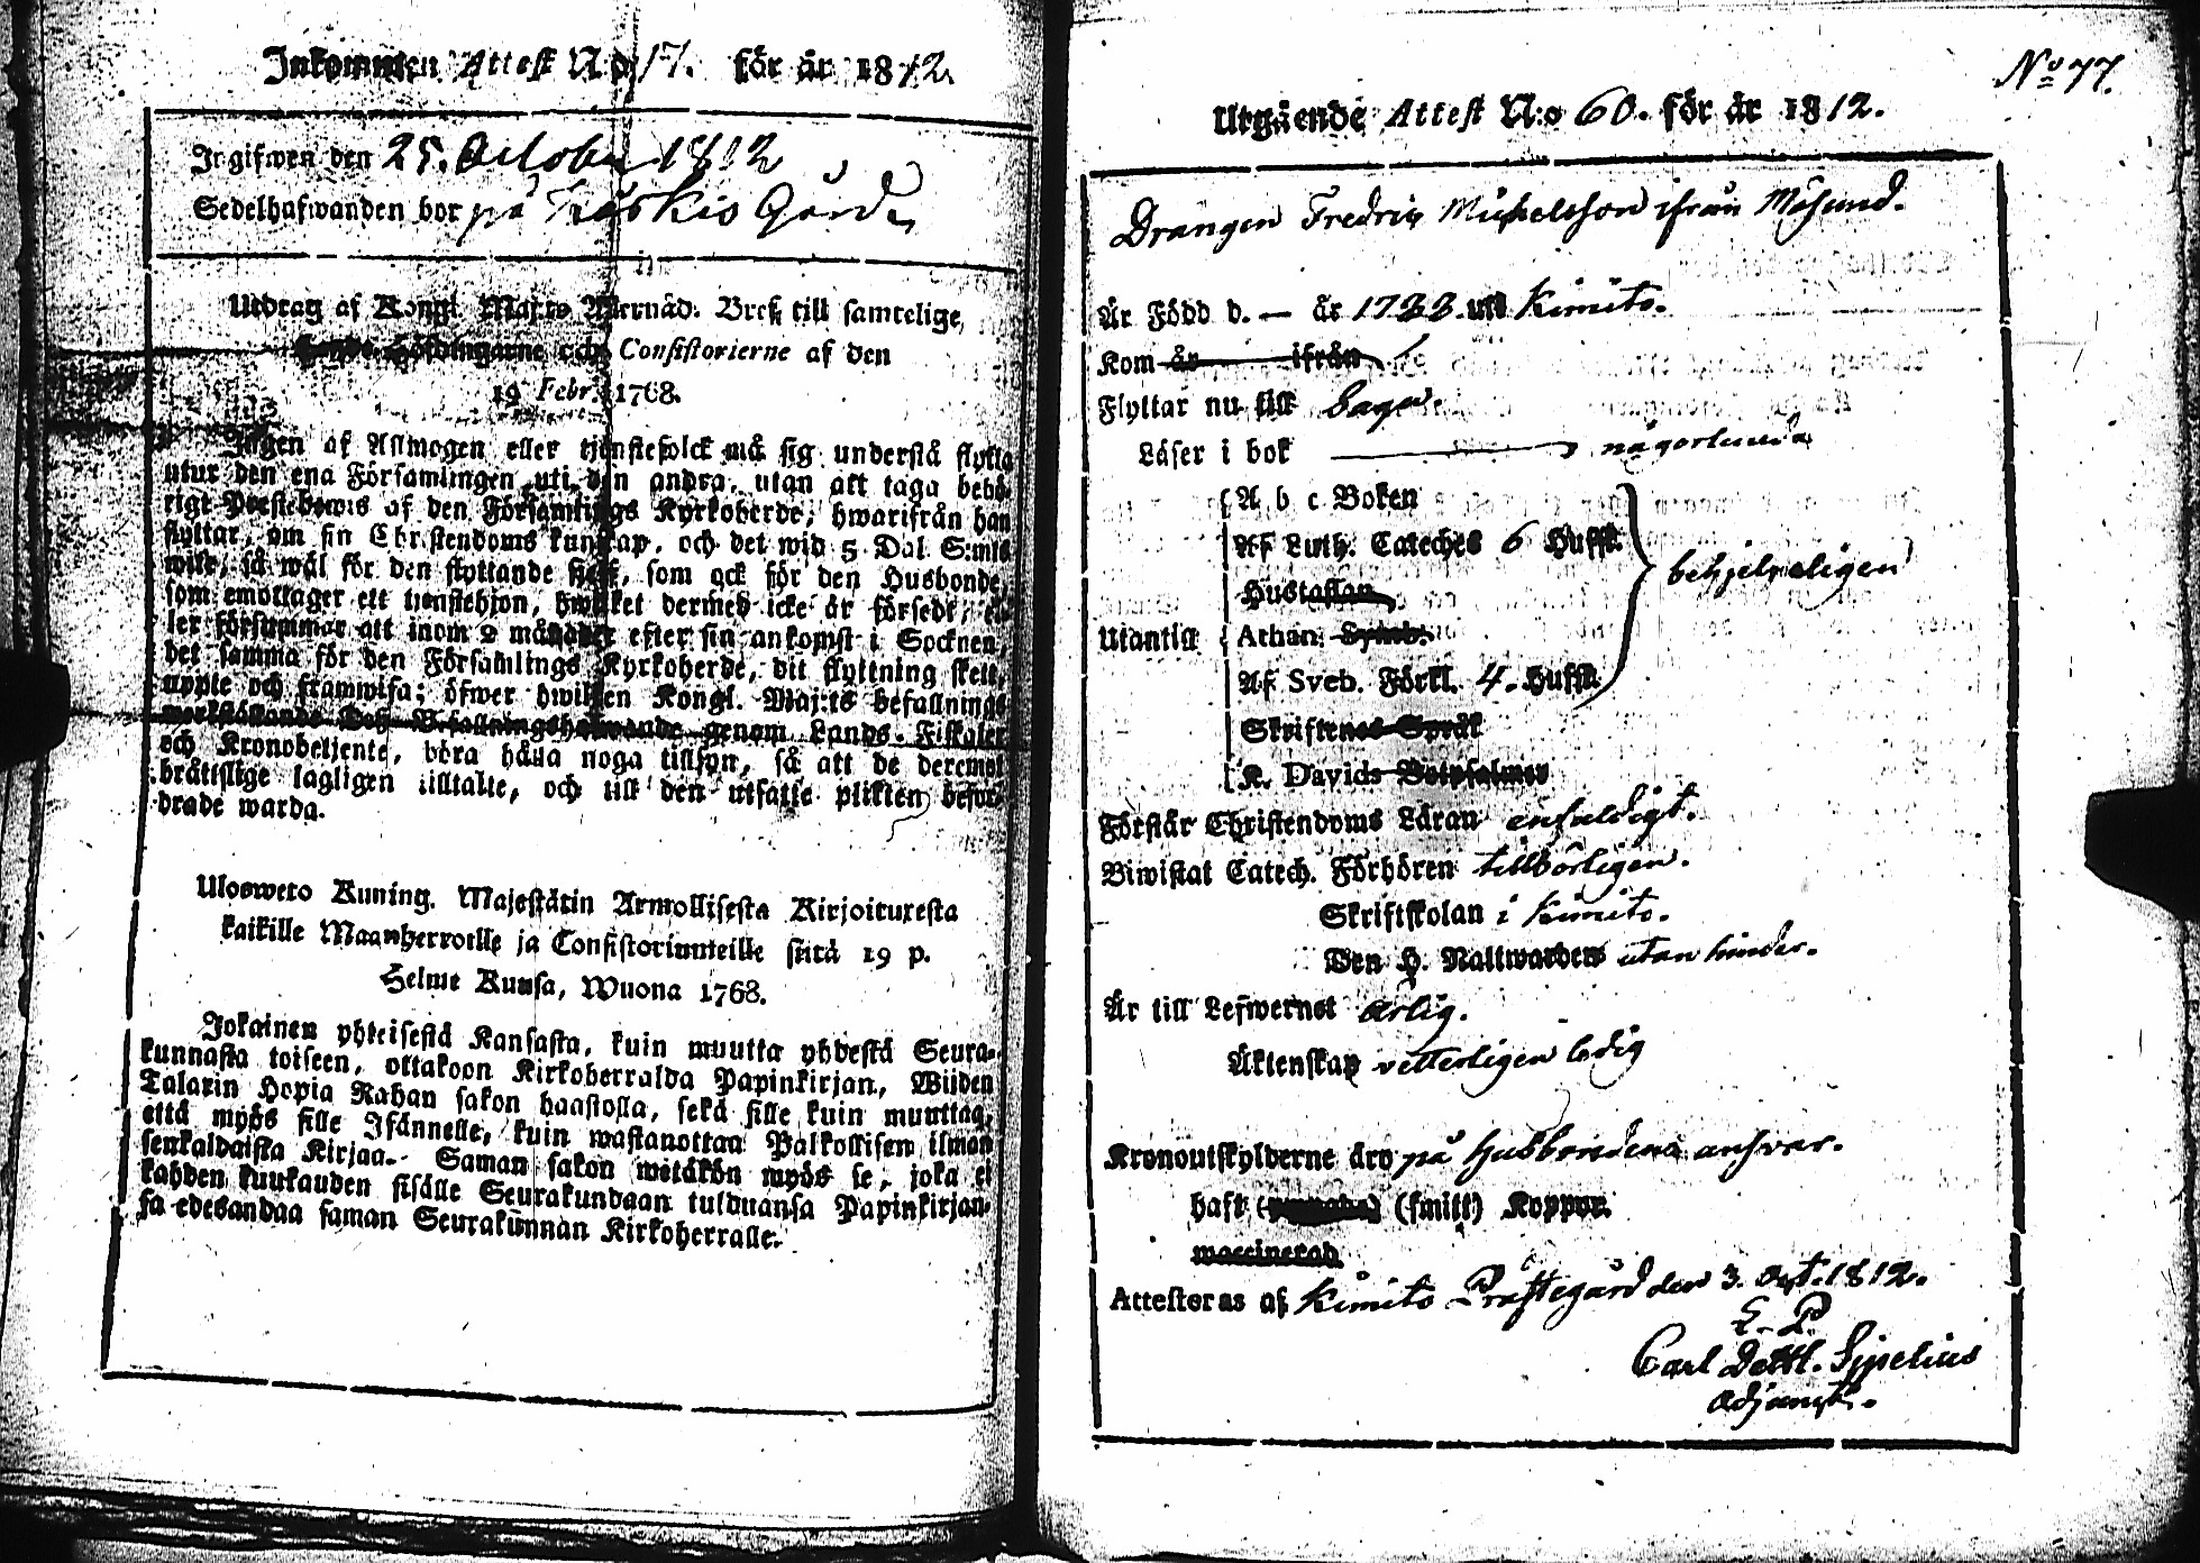 Inkommen Attest N:o 17. för år 1812.
Ingifwen den 25. October 1812
Sedelhafwanden bor på Kåskis Gård
Utdrag af Kongl. Maj:ts Allernåd. Bref till samtelige
Höfdingarne och Consistorierne af den
19 Febr. 1768.
Ingen af Allmogen eller tjenstefolck må sig understå flytta
utur den ena Församlingen uti den andra, utan att taga behö-
rigt Prestebewis af den Församlings Kyrkoherde, hwarifrån han
flyttar, om sin Christendoms kunskap, och det wid 5 Dal. S:mts
wite, så wäl för den flyttande sielf, som ock för den Husbonde,
som emottager ett tienstehjon, hwilket dermed icke är försedt, el-
ler försummar att inom 2 månader efter sin ankomst i Socknen,
det samma för den Församlings Kyrkoherde, dit flyttning skett,
uppte och framwisa; öfwer hwilken Kongl. Maj:ts befallnings
werkställande Des Befallningshafwande genom Lands-Fiskaler
och Kronobetjente, böra hålla noga tillsyn, så att de deremot
bråttslige lagligen tilltalte, och till den utsatte plikten befor-
drade warda.
Ulosweto Kuning. Majestätin Armollisesta Kirjoituxesta
kaikille Maanherroille ja Consistoriumeille siitä 19 p.
Helme Kuusa, Wuona 1768.
Jokainen yhteisestä Kansasta, kuin muutta yhdestä Seura-
kunnasta toiseen, ottakoon Kirkoherralda Papinkirjan, Wiiden
Talarin Hopia Rahan sakon haastolla, sekä sille kuin muuttaa,
että myös sille Isännelle, kuin wastanottaa Palkollisen ilman
senkaldaista Kirjaa. Saman sakon wetäkön myös se, joka ei
kahden kuukauden sisälle Seurakundaan tulduansa Papinkirjan-
sa edesandaa saman Seurakunnan Kirkoherralle.
No 77.
Utgående Attest N:o 60. för år 1812.
Drängen Fredric Michelsson ifrån Mösund.
Är Född d. — år 1788 uti Kimito.
Kom år ifrån
Flyttar nu till Sagu.
Läser i bok någorlunda
A b c Boken
Af Luth. Cateches 6 Hufst.
Hustaflan
behjelpeligen
Utantill Athan. Symb.
Af Sveb. Förkl. 4. Hufst.
Skriftenes Språk
K. Davids Botpsalmer
Förstår Christendoms Läran enfaldigt.
Biwistat Catech. Förhören tillbörligen.
Skriftskolan i Kimito.
Den H. Nattwarden utan hinder.
Är till Lefwernet ärlig.
Äktenskap vetterligen ledig
Kronoutskylderne äro på Husbondens answar.
haft (smitt) Koppor.
waccinerad
Attesteras af Kimito Prästegård den 3. Oct. 1812.
E. P.
Carl Dettl. Sipelius
Adjunct.